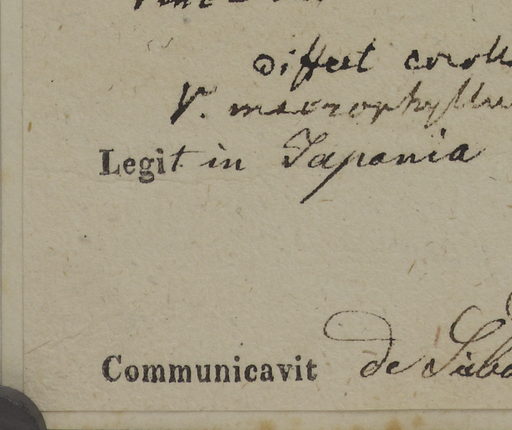 Differt coroll
V. macrophyllu
Legit in Japonia
Communicavit de Siebo